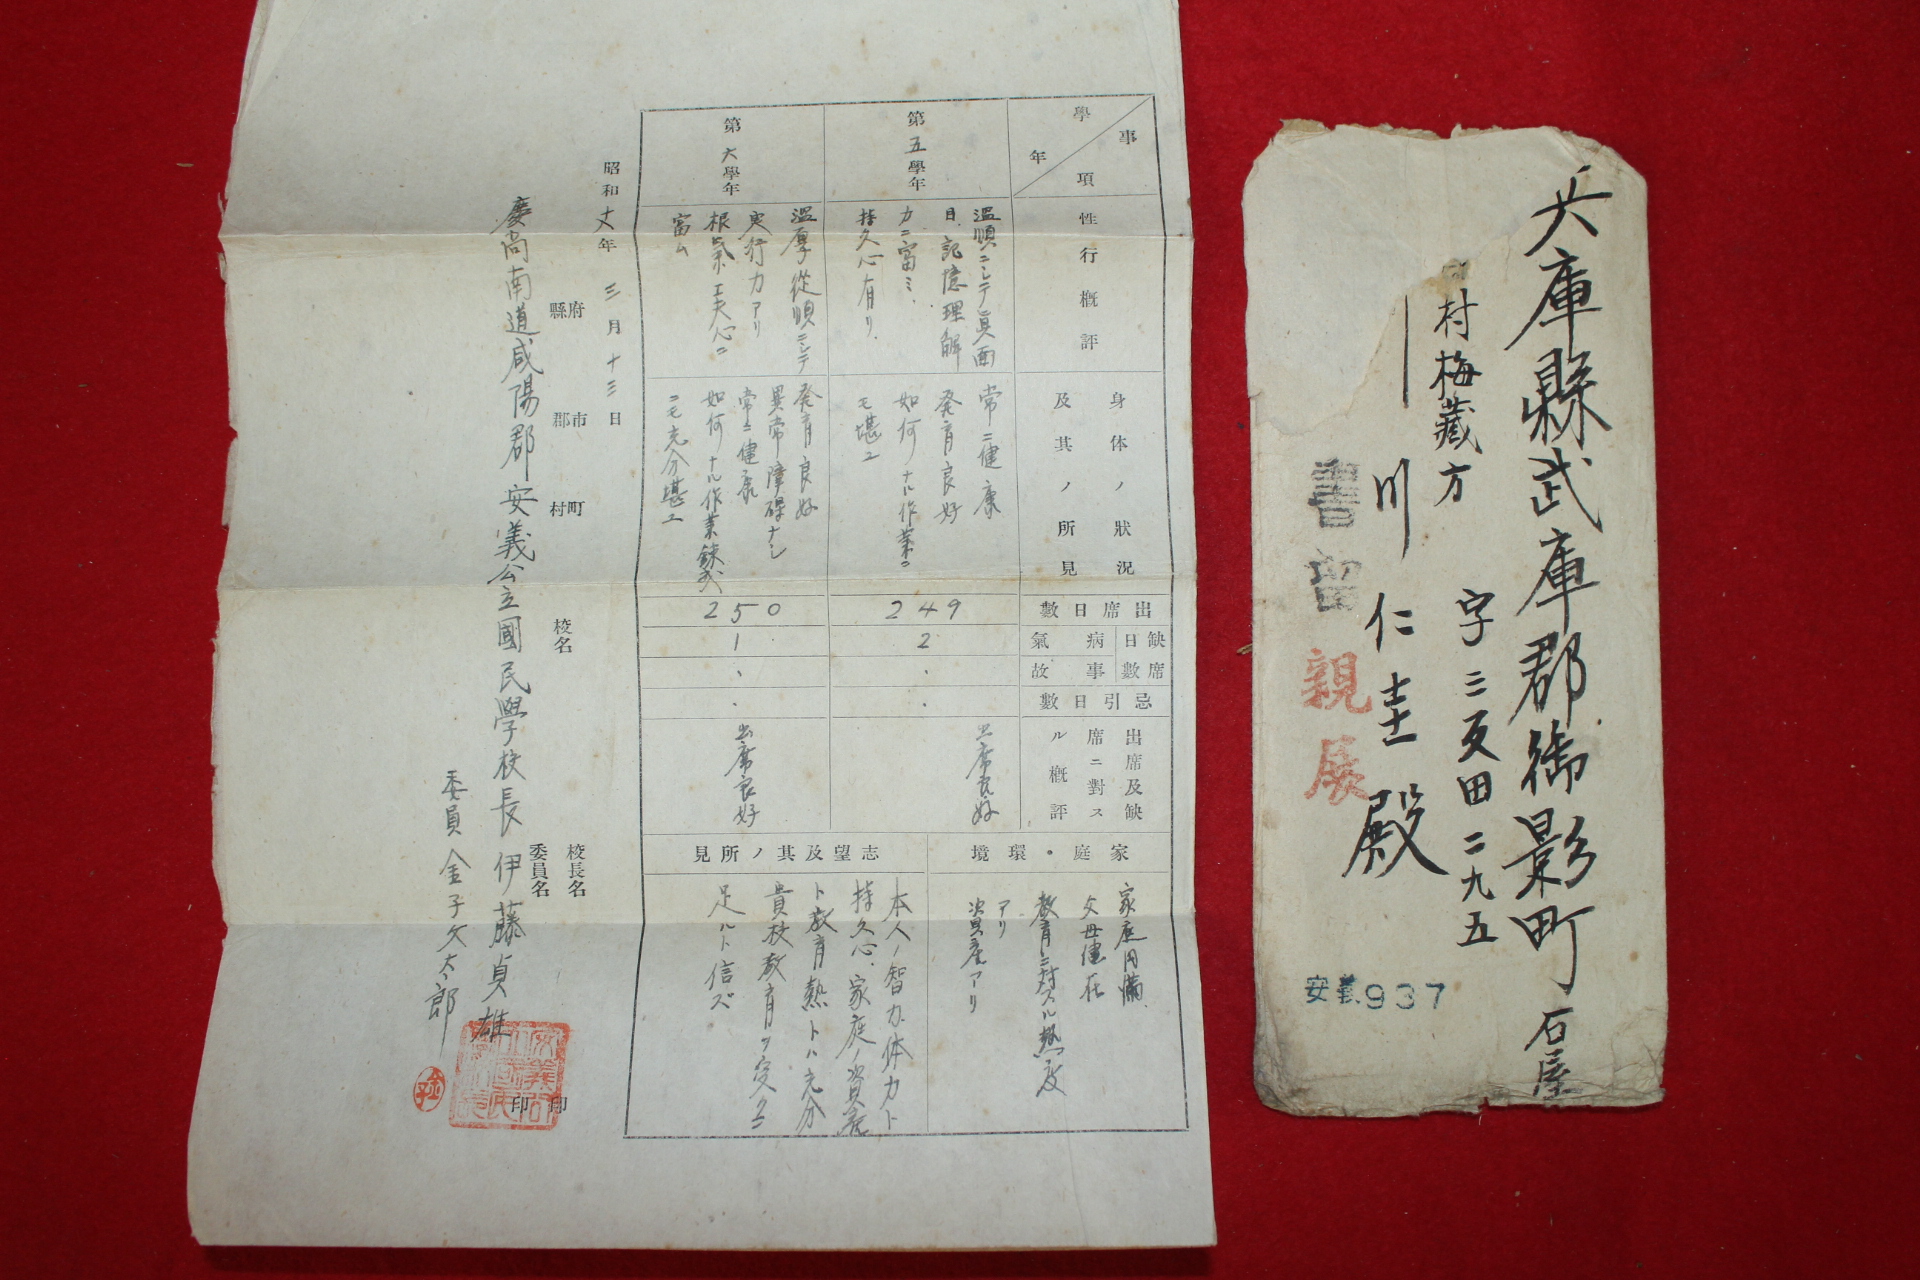 學年
事項
性行概評
身体ノ狀況
及其ノ所見
出席日數
缺席日數
病氣
事故
忌引日數
出席及缺
席ニ對ス
ル概評
第五學年
溫順ニシテ眞面
目、記憶理解
力ニ富ミ、
持久心有リ、
常ニ健康
発育良好
如何ナル作業ニ
モ堪エ
249
2
出席良好
第六學年
溫厚從順ニシテ
実行力アリ
根気工夫心ニ
富ム
発育良好
異常障碍ナシ
常ニ健康
如何ナル作業鍊成
ニモ充分堪エ
250
1
出席良好
家庭・環境
家庭円満、
父母健在
教育ニ対スル熱度
アリ
資産アリ
志望及其ノ所見
本人ノ智力体力ト
持久心、家庭ノ資産
ト教育熱トハ充分
貴校教育ヲ受クニ
足ルト信ズ
昭和 年 三月十三日
府縣
市郡
町村
校名
校長名
委員名
慶尚南道咸陽郡安義公立國民學校長 伊藤貞雄
委員 金子文太郎
印
印
兵庫縣武庫郡御影町石屋
字三反田二九五
村梅藏方
川仁圭殿
書留
親展
安義937